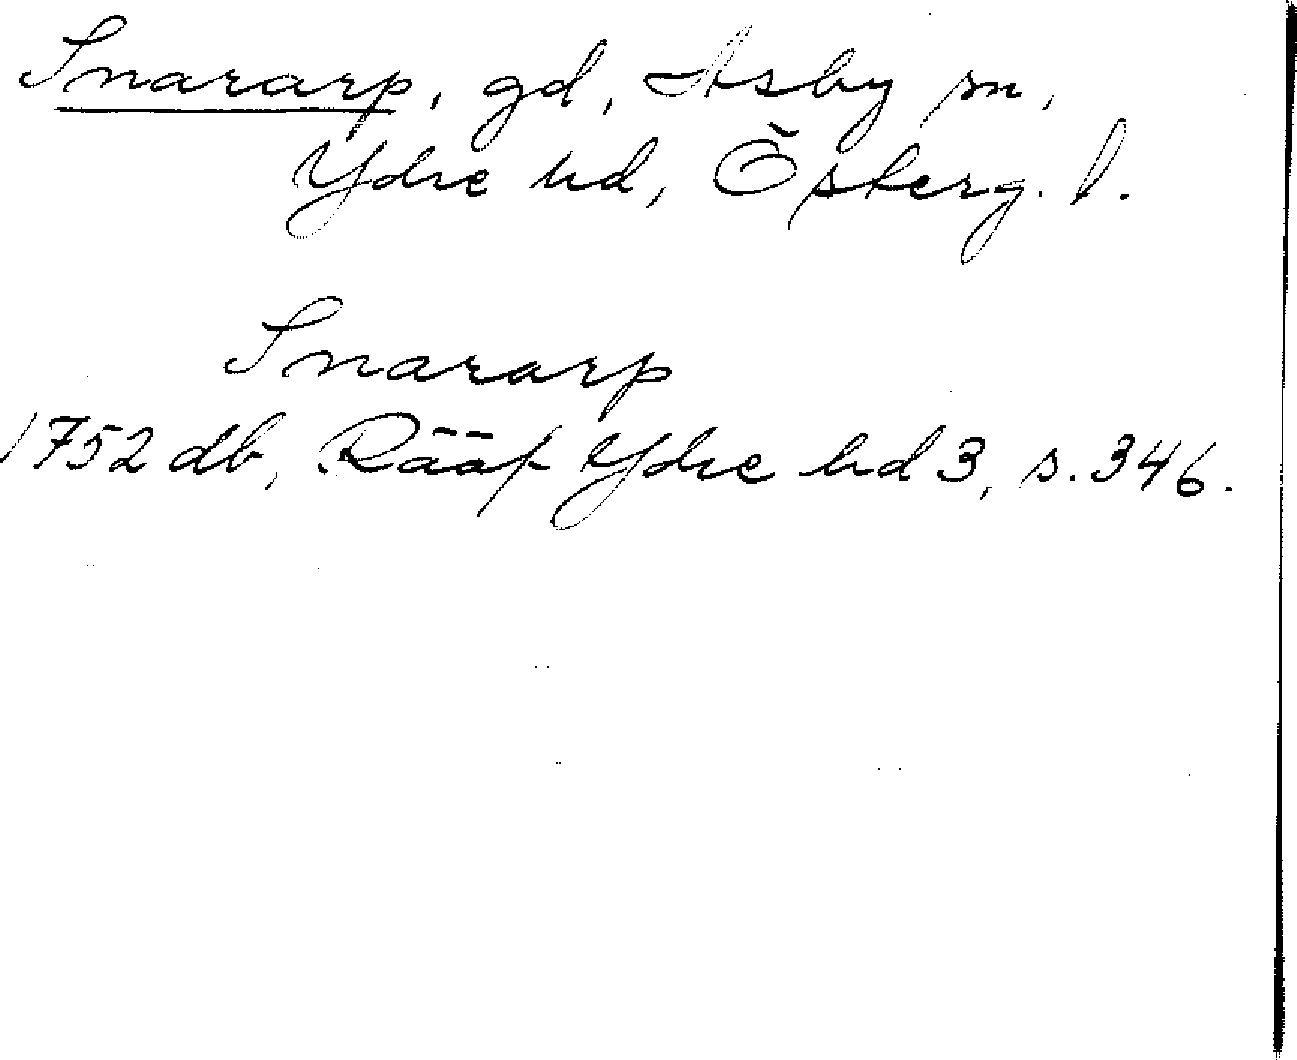 Snararp, gd, Asby sn,
Ydre hd, Österg. l.
Snararp
1752 db, Rääf Ydre hd 3, s. 346.